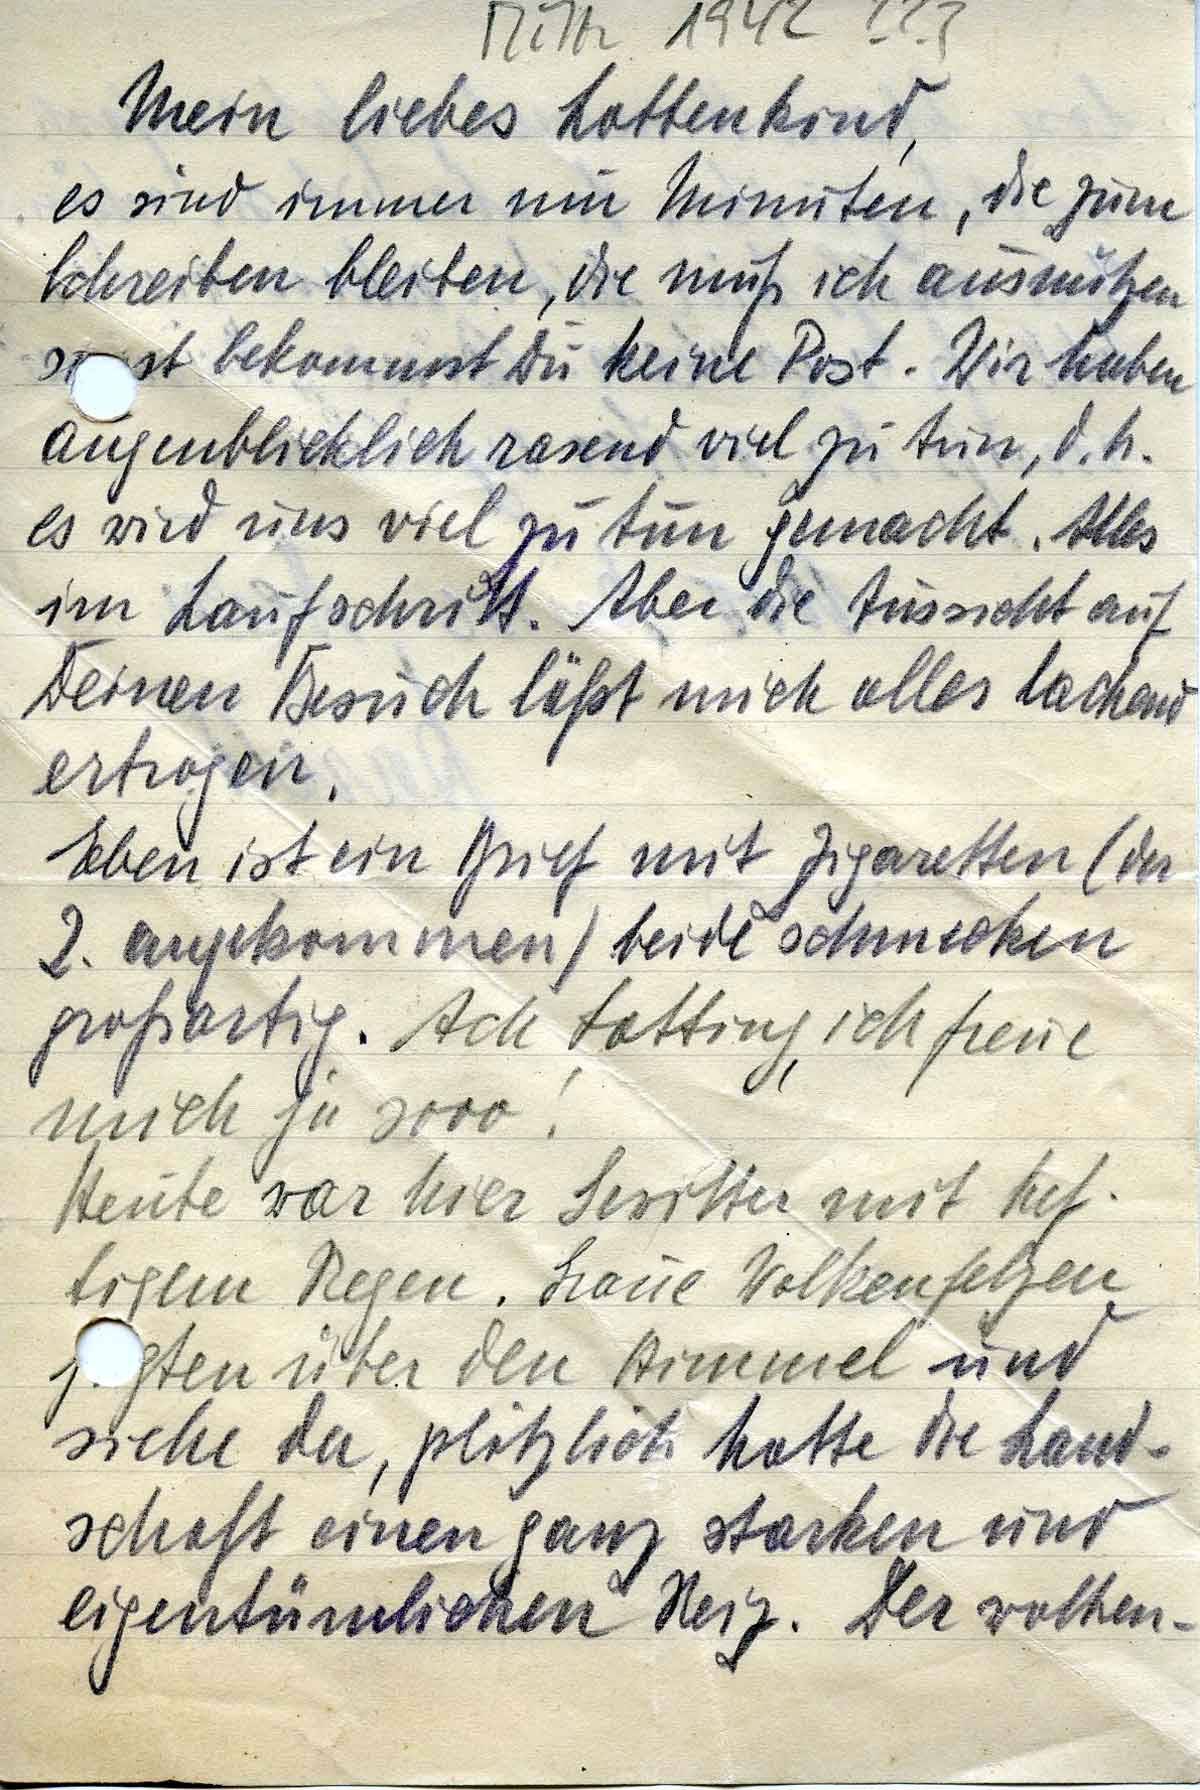 Mitte 1942 ???
Mein liebes Lottenkind,
es sind immer nur Minuten, die zum
Schreiben bleiben, die muß ich ausnützen
sonst bekommst Du keine Post. Wir haben
augenblicklich rasend viel zu tun, d.h.
es wird uns viel zu tun gemacht. Alles
im Laufschritt. Aber die Aussicht auf
Deinen Besuch läßt mich alles lachend
ertragen.
Eben ist ein Brief mit Zigaretten (der
2. angekommen) beide schmecken
großartig. Ach Lotting, ich freue
mich ja sooo!
Heute war hier Gewitter mit hef-
tigem Regen. Graue Wolkenfetzen
jagten über den Himmel und
siehe da, plötzlich hatte die Land-
schaft einen ganz starken und
eigentümlichen Reiz. Der wolken-